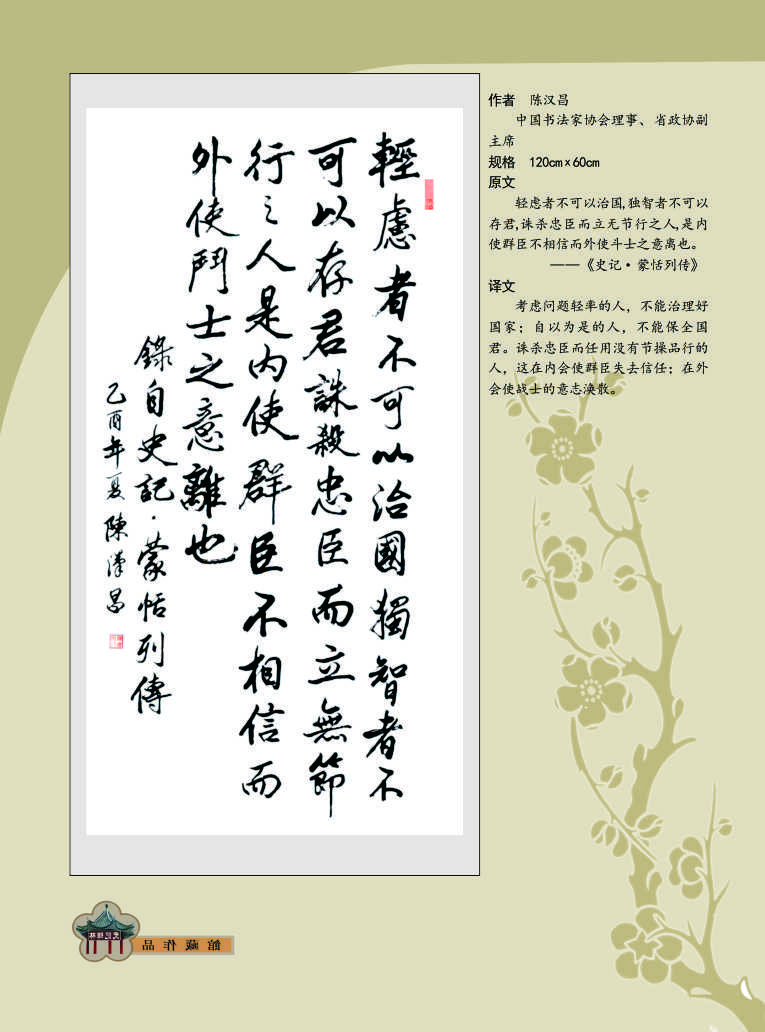 輕慮者不可以治國獨智者不
可以存君誅殺忠臣而立無節
行之人是内使群臣不相信而
外使鬥士之意離也
錄自史記·蒙恬列傳
乙酉年夏陳漢昌
作者 陈汉昌
中国书法家协会理事、省政协副
主席
规格 120cm×60cm
原文
轻虑者不可以治国,独智者不可以
存君,诛杀忠臣而立无节行之人,是内
使群臣不相信而外使斗士之意离也。
——《史记·蒙恬列传》
译文
考虑问题轻率的人，不能治理好
国家；自以为是的人，不能保全国
君。诛杀忠臣而任用没有节操品行的
人，这在内会使群臣失去信任；在外
会使战士的意志涣散。
館藏作品